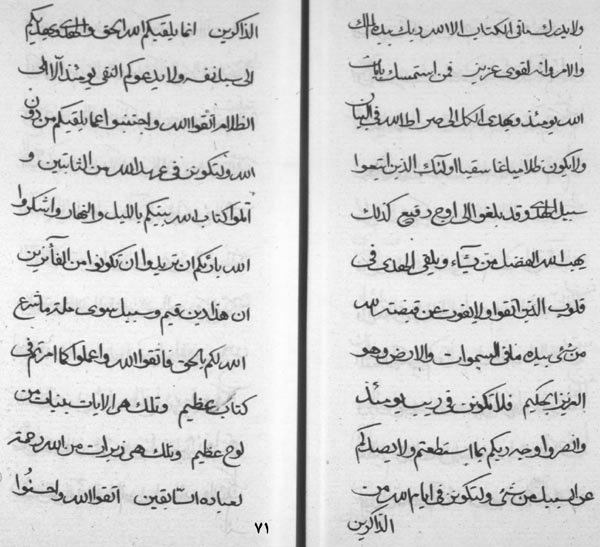 ولا يدرك ما فى الكتاب الا الله ربك بيده الملك
والامر وانه لقوى عزيز فمن استمسك بايات
الله يومئذ ويهدى الكل الى صراط الله فى البيان
ولا يكون ظلاميا غاسقيا اولئك الذين اتبعوا
سبيل الهدى وقد بلغوا الى اوج رفيع كذلك
يهب الله الفضل من يشاء ويلقى الهدى فى
قلوب الذين اتقوا ولا يفوت عن قبضته الله
من شئ بيده ما فى السموات والارض وهو
العزيز الحكيم فلا تكونن فى ريب يومئذ
وانصروا وجه ربكم بما استطعتم ولا يصدنكم
عن السبيل من شئ ولتكونن فى ايام الله من
الذاكرين
الذاكرين انما يلقيكم الله الحق والهدى ويهديكم
الى سبيل نفسه ولا يدعوكم النفى يومئذ الا الى
الظلام اتقوا الله واجتنبوا عما يلقيكم من دون
الله ولتكونن فى عهد الله من الثابتين و
اتلوا كتاب الله بينكم بالليل والنهار واشكروا
الله بارئكم ان تريدوا ان تكونوا من الفائزين
ان هذا لدين قيم وسبيل سوى ملة ما شرع
الله لكم بالحق فاتقوا الله واعملوا كما امرتم فى
كتاب عظيم وتلك هى الايات بينات من
لوح عظيم وتلك هى زبرات من الله رحمة
لعباده السابقين اتقوا الله واحسنوا
٧١